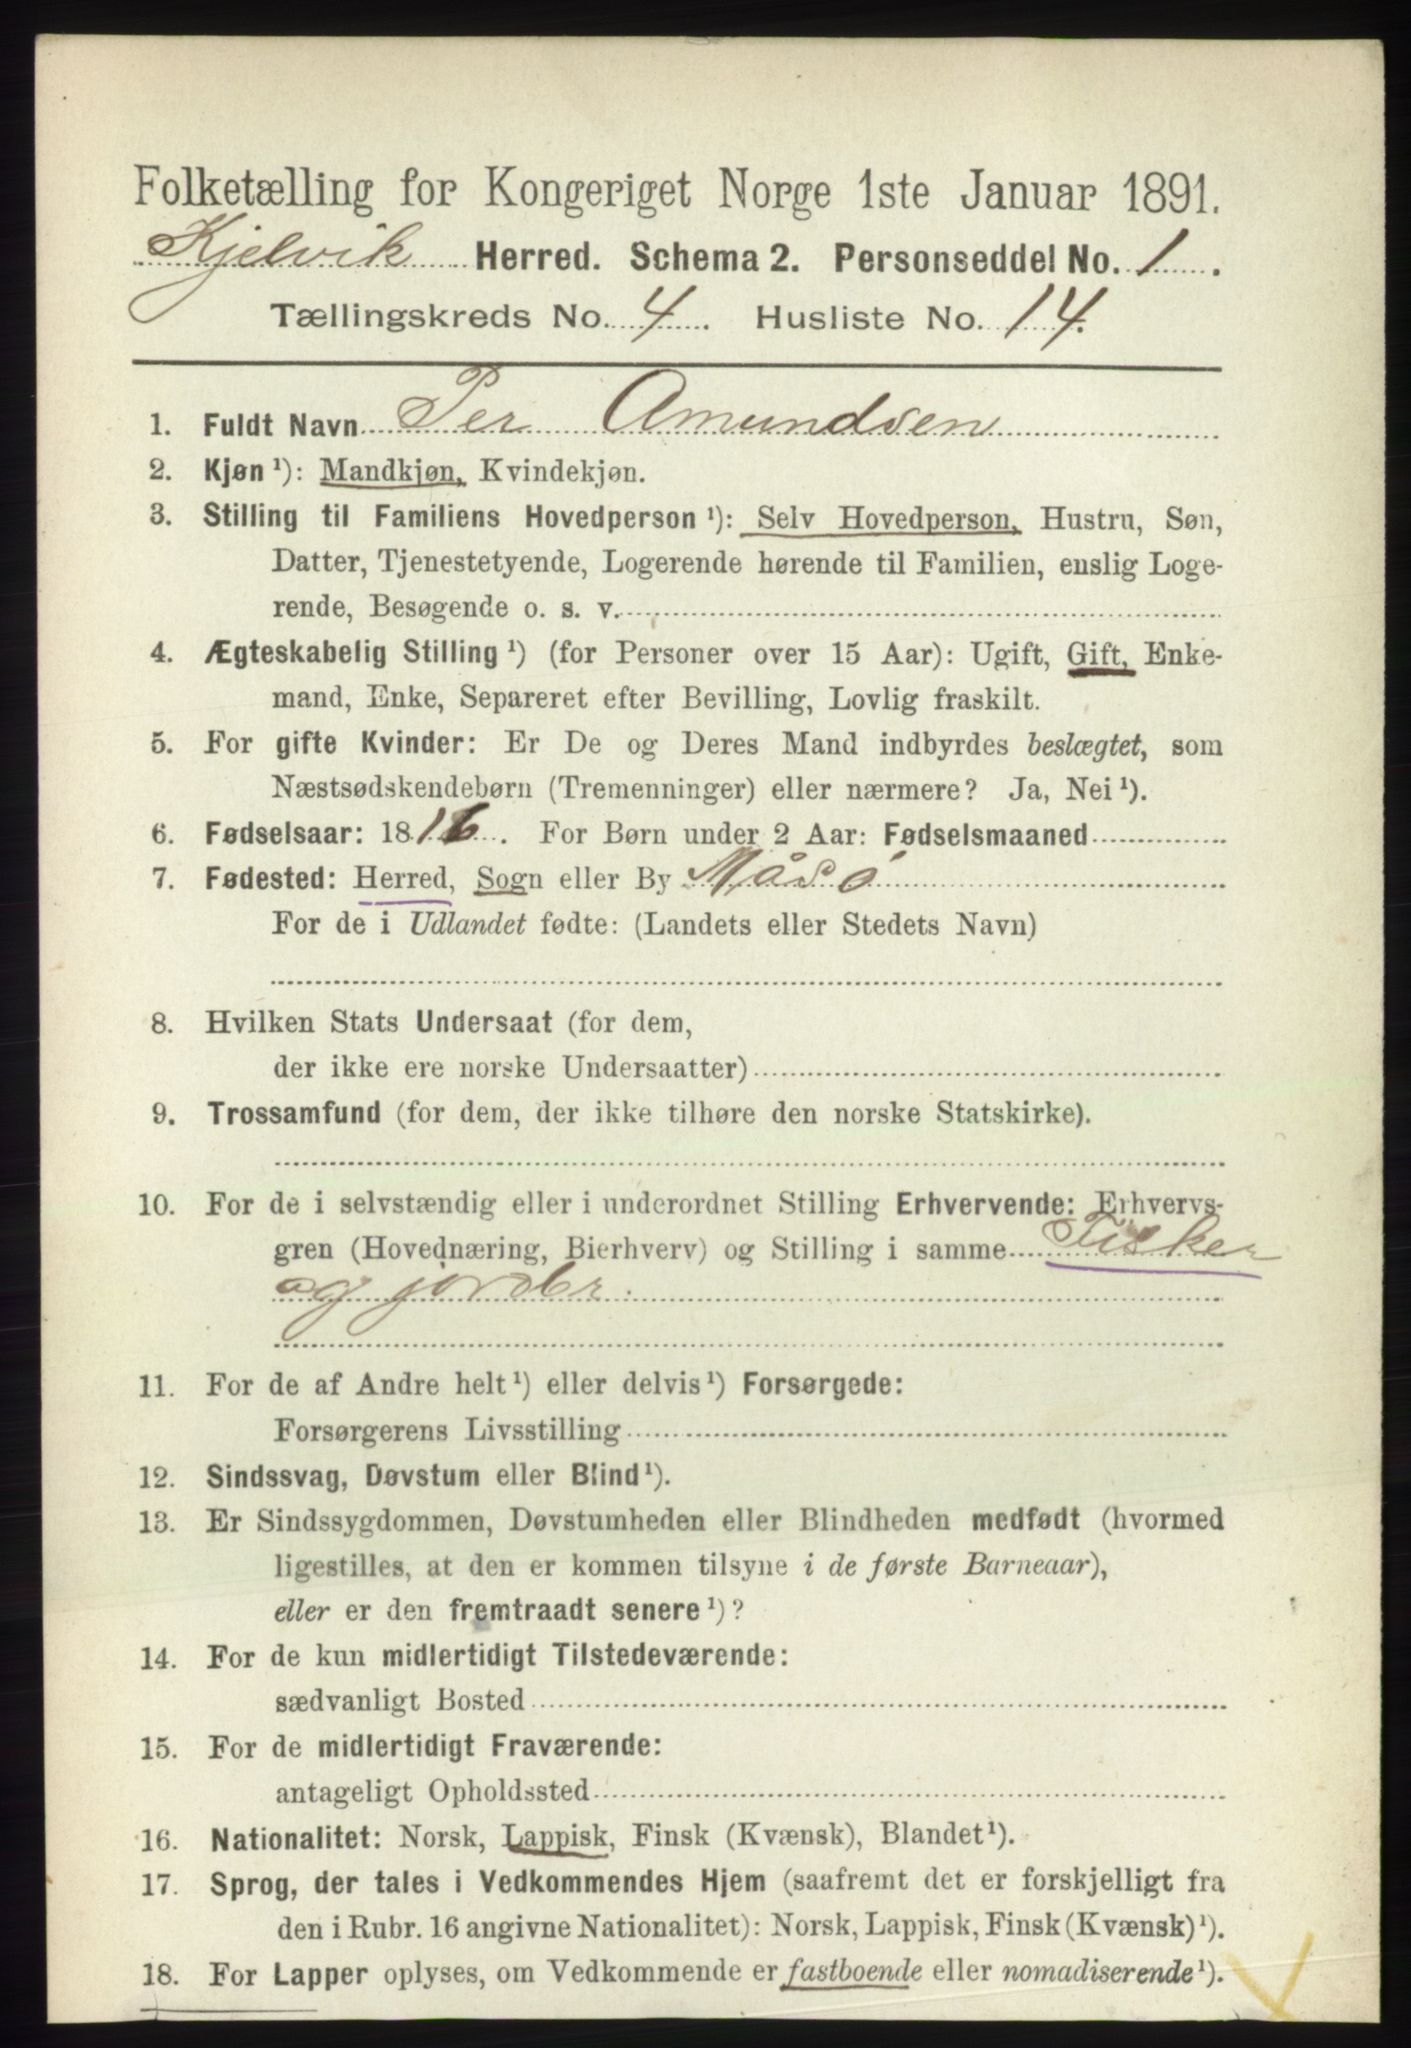 Folketælling for Kongeriget Norge 1ste Januar 1891.
Kjelvik Herred. Schema 2. Personseddel No. 1.
Tællingskreds No. 4. Husliste No. 14.
1. Fuldt Navn Per Amundsen
2. Kjøn ¹): Mandkjøn, Kvindekjøn.
3. Stilling til Familiens Hovedperson ¹): Selv Hovedperson, Hustru, Søn,
Datter, Tjenestetyende, Logerende hørende til Familien, enslig Loge-
rende, Besøgende o. s. v.
4. Ægteskabelig Stilling ¹) (for Personer over 15 Aar): Ugift, Gift, Enke-
mand, Enke, Separeret efter Bevilling, Lovlig fraskilt.
5. For gifte Kvinder: Er De og Deres Mand indbyrdes beslægtet, som
Næstsødskendebørn (Tremenninger) eller nærmere? Ja, Nei ¹).
6. Fødselsaar: 1816. For Børn under 2 Aar: Fødselsmaaned
7. Fødested: Herred, Sogn eller By Måsø
For de i Udlandet fødte: (Landets eller Stedets Navn)
8. Hvilken Stats Undersaat (for dem,
der ikke ere norske Undersaatter)
9. Trossamfund (for dem, der ikke tilhøre den norske Statskirke).
10. For de i selvstændig eller i underordnet Stilling Erhvervende: Erhvervs-
gren (Hovednæring, Bierhverv) og Stilling i samme Fisker
og jordbr.
11. For de af Andre helt ¹) eller delvis ¹) Forsørgede:
Forsørgerens Livsstilling
12. Sindssvag, Døvstum eller Blind ¹).
13. Er Sindssygdommen, Døvstumheden eller Blindheden medfødt (hvormed
ligestilles, at den er kommen tilsyne i de første Barneaar),
eller er den fremtraadt senere ¹)?
14. For de kun midlertidigt Tilstedeværende:
sædvanligt Bosted
15. For de midlertidigt Fraværende:
antageligt Opholdssted
16. Nationalitet: Norsk, Lappisk, Finsk (Kvænsk), Blandet ¹).
17. Sprog, der tales i Vedkommendes Hjem (saafremt det er forskjelligt fra
den i Rubr. 16 angivne Nationalitet): Norsk, Lappisk, Finsk (Kvænsk) ¹).
18. For Lapper oplyses, om Vedkommende er fastboende eller nomadiserende ¹).